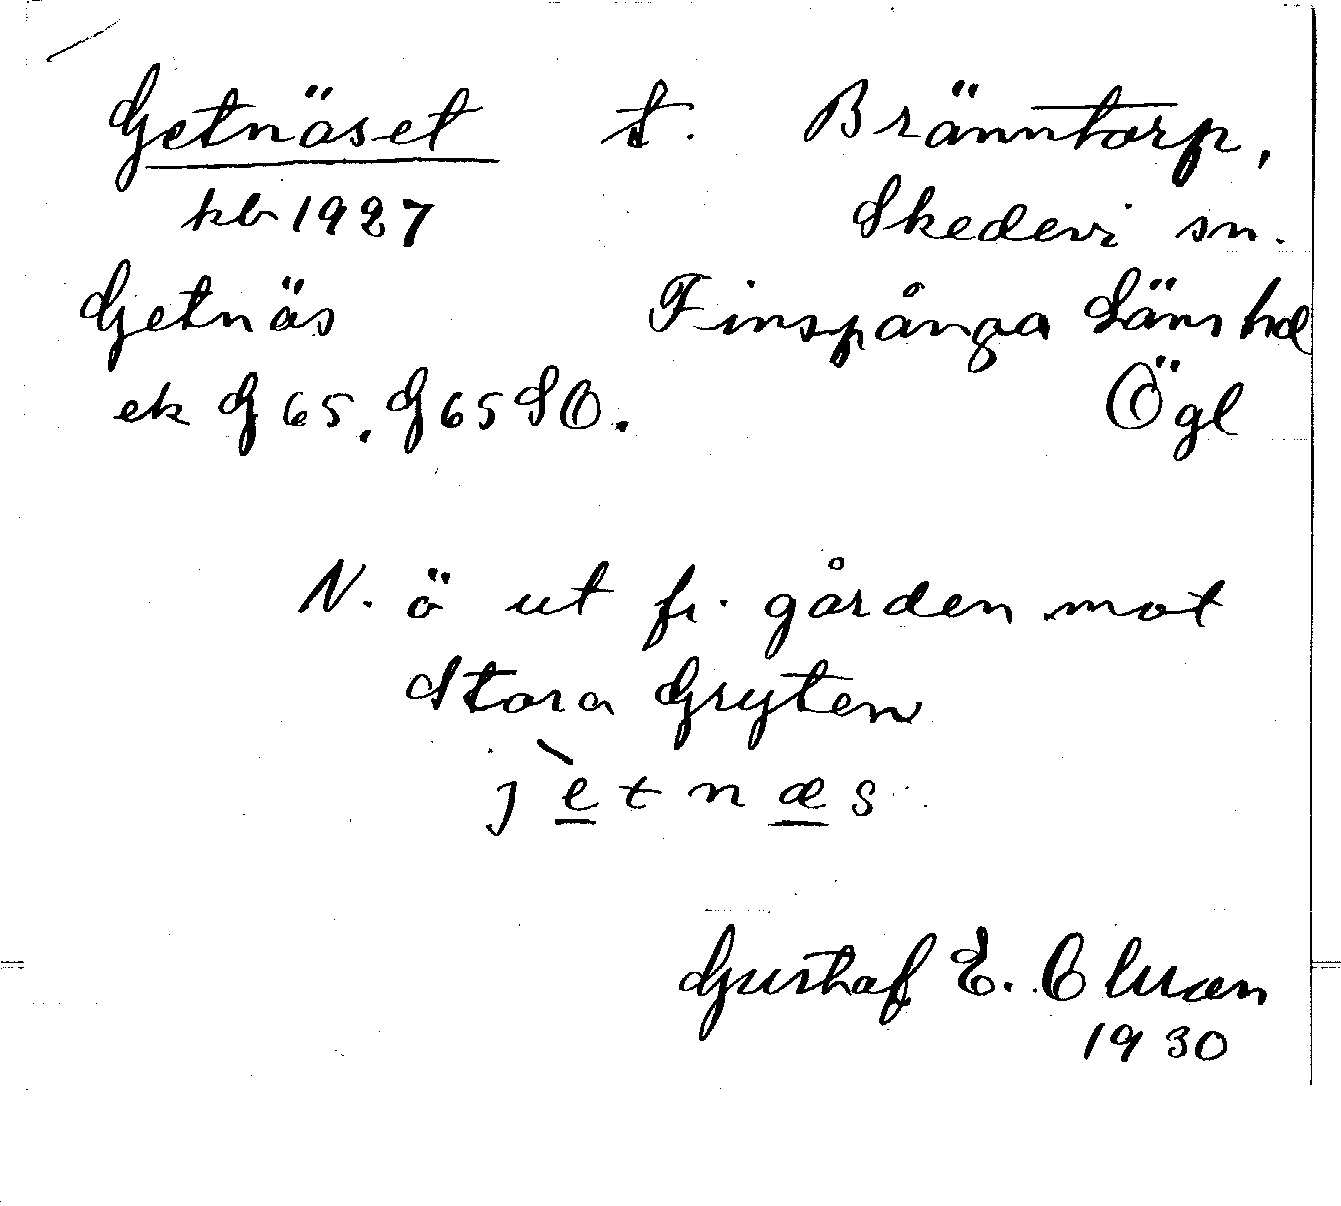 Getnäset t. Bränntorp,
kb 1927 Skedevi sn.
Getnäs Finspånga Läns hd
ek G 65. G 65 SO. Ögl
N. ö ut fr. gården mot
Stora Gryten
j è t n æ s
Gustaf E. Olsson
1930